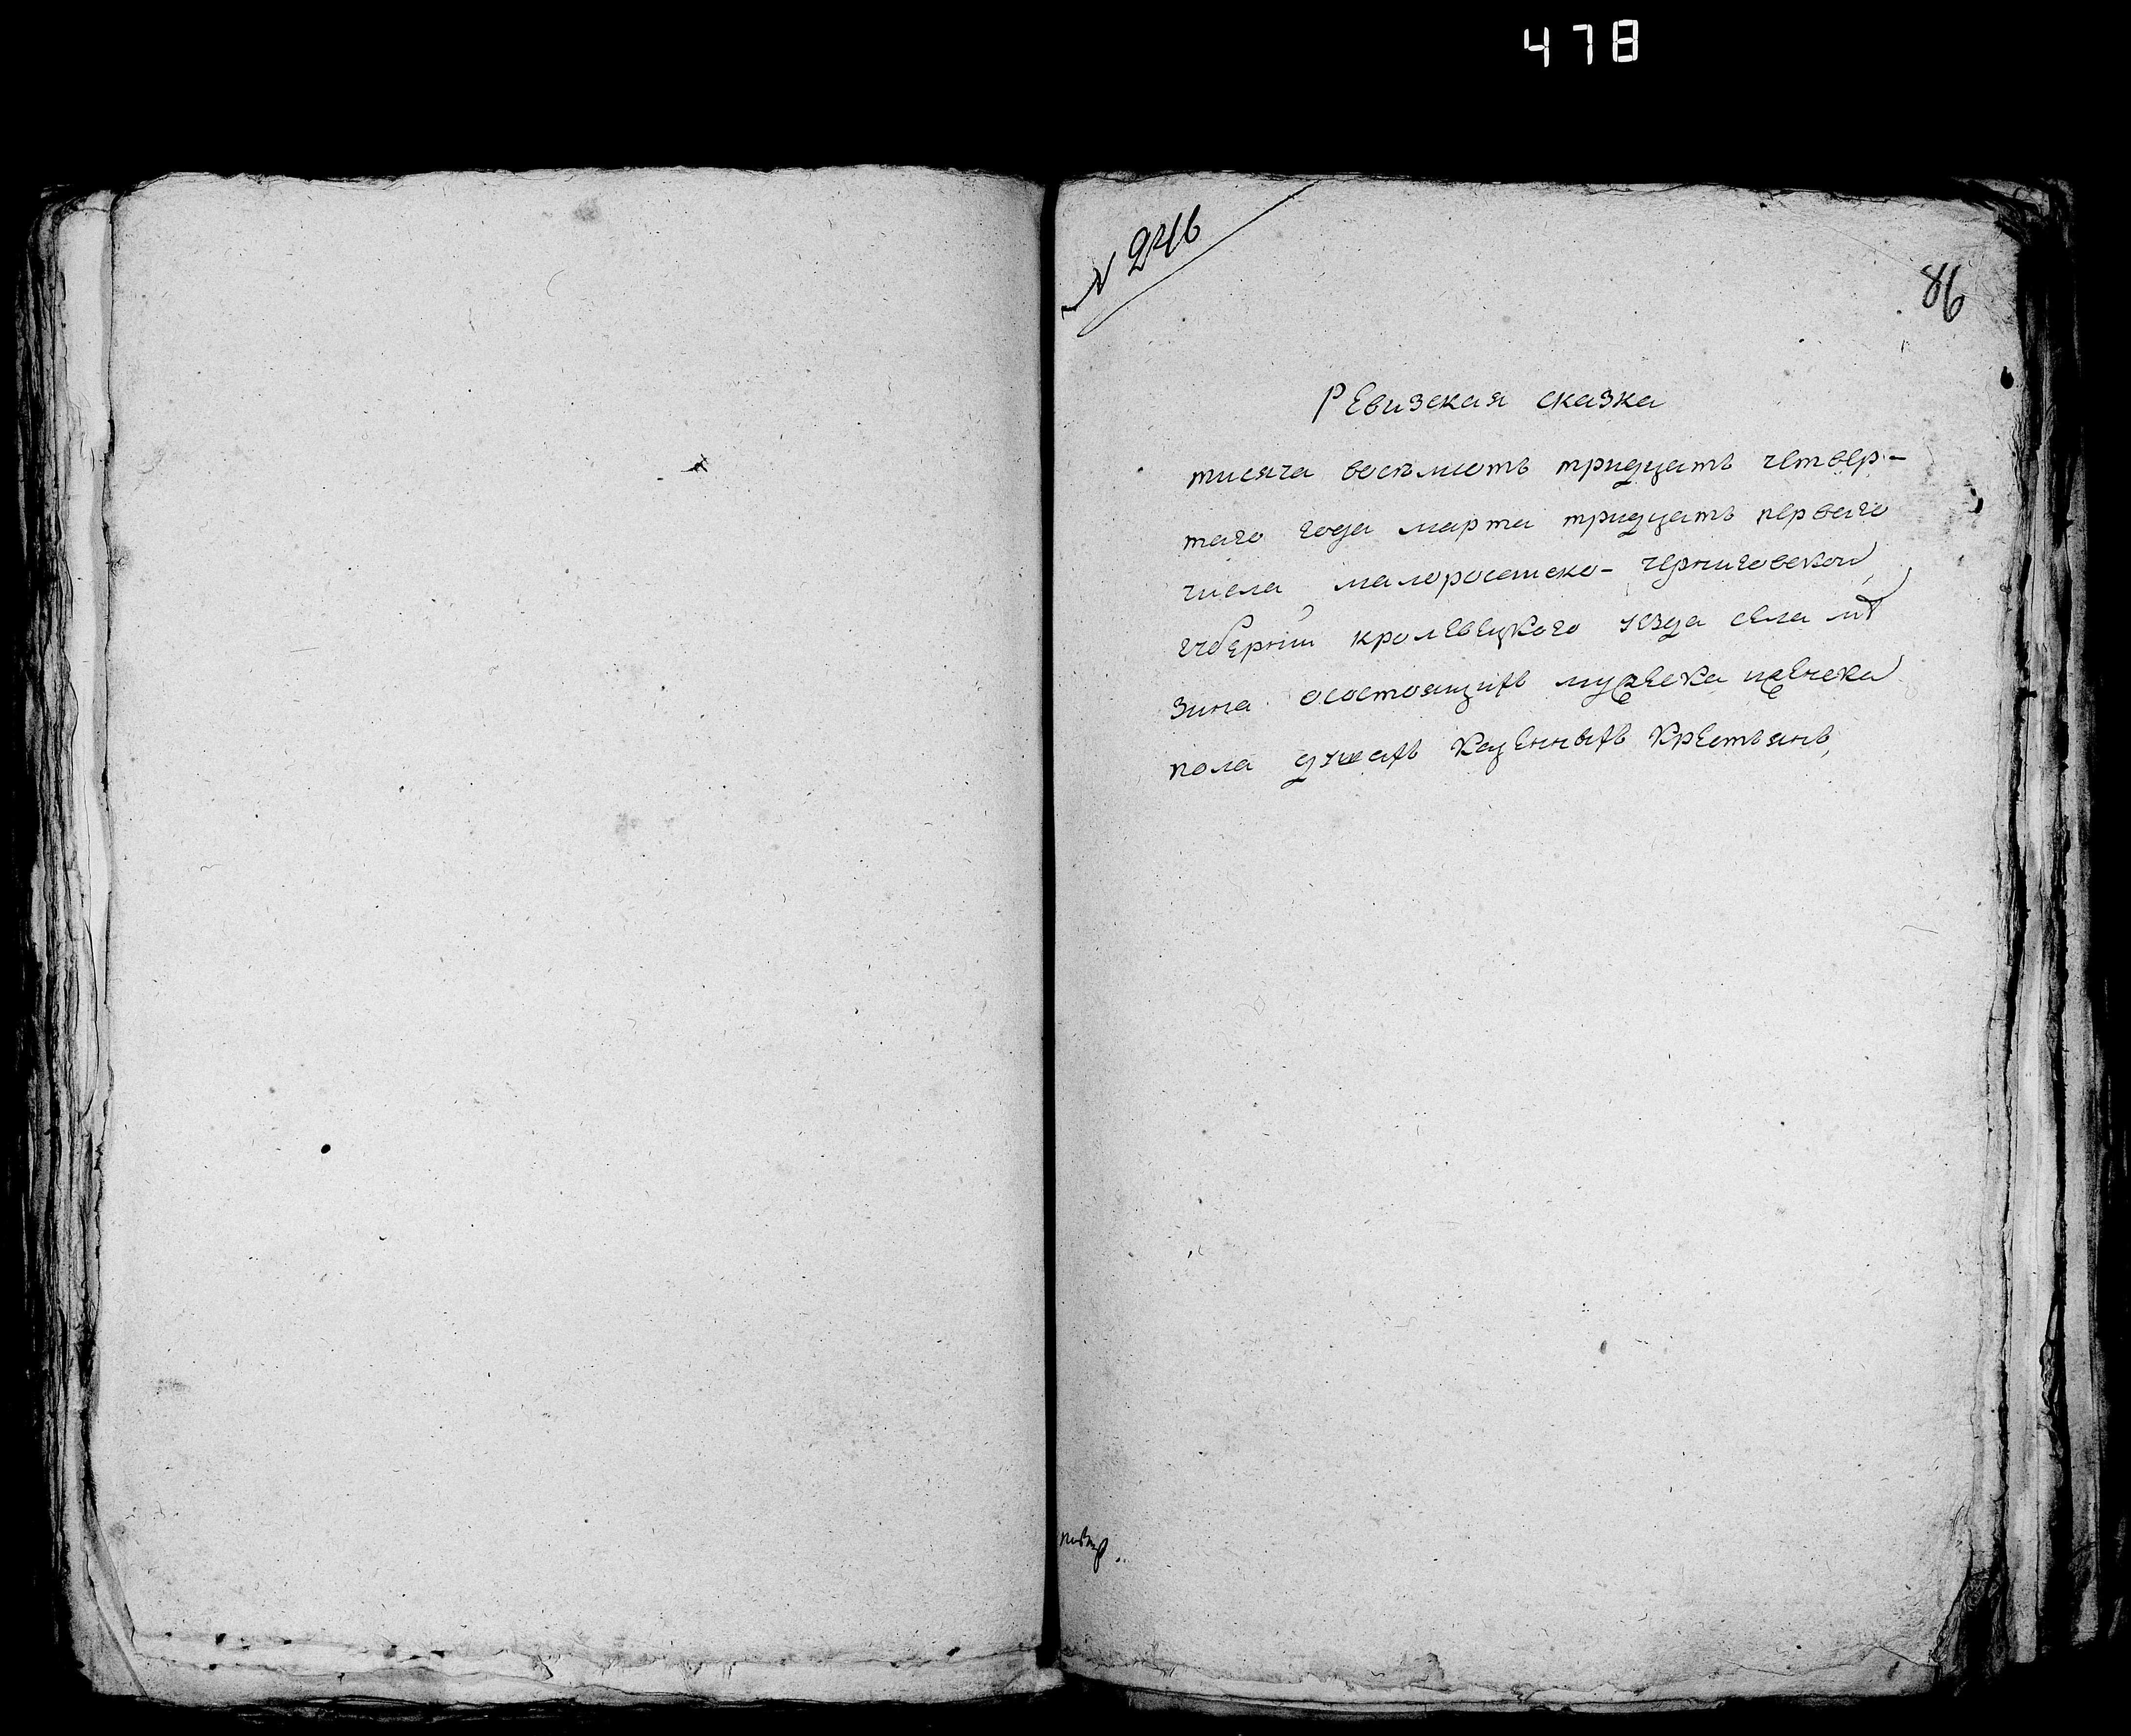 478
N 246
86
Ревизская сказка
тисяча восъмъсотъ тридцатъ четвер-
таго года марта тридцатъ перваго
числа малоросейско- черниговской
губернїи кролевецкого уезда села мѣ
зина осостоящихъ мужеска иженска
пола душахъ казенныхъ крестьянъ,